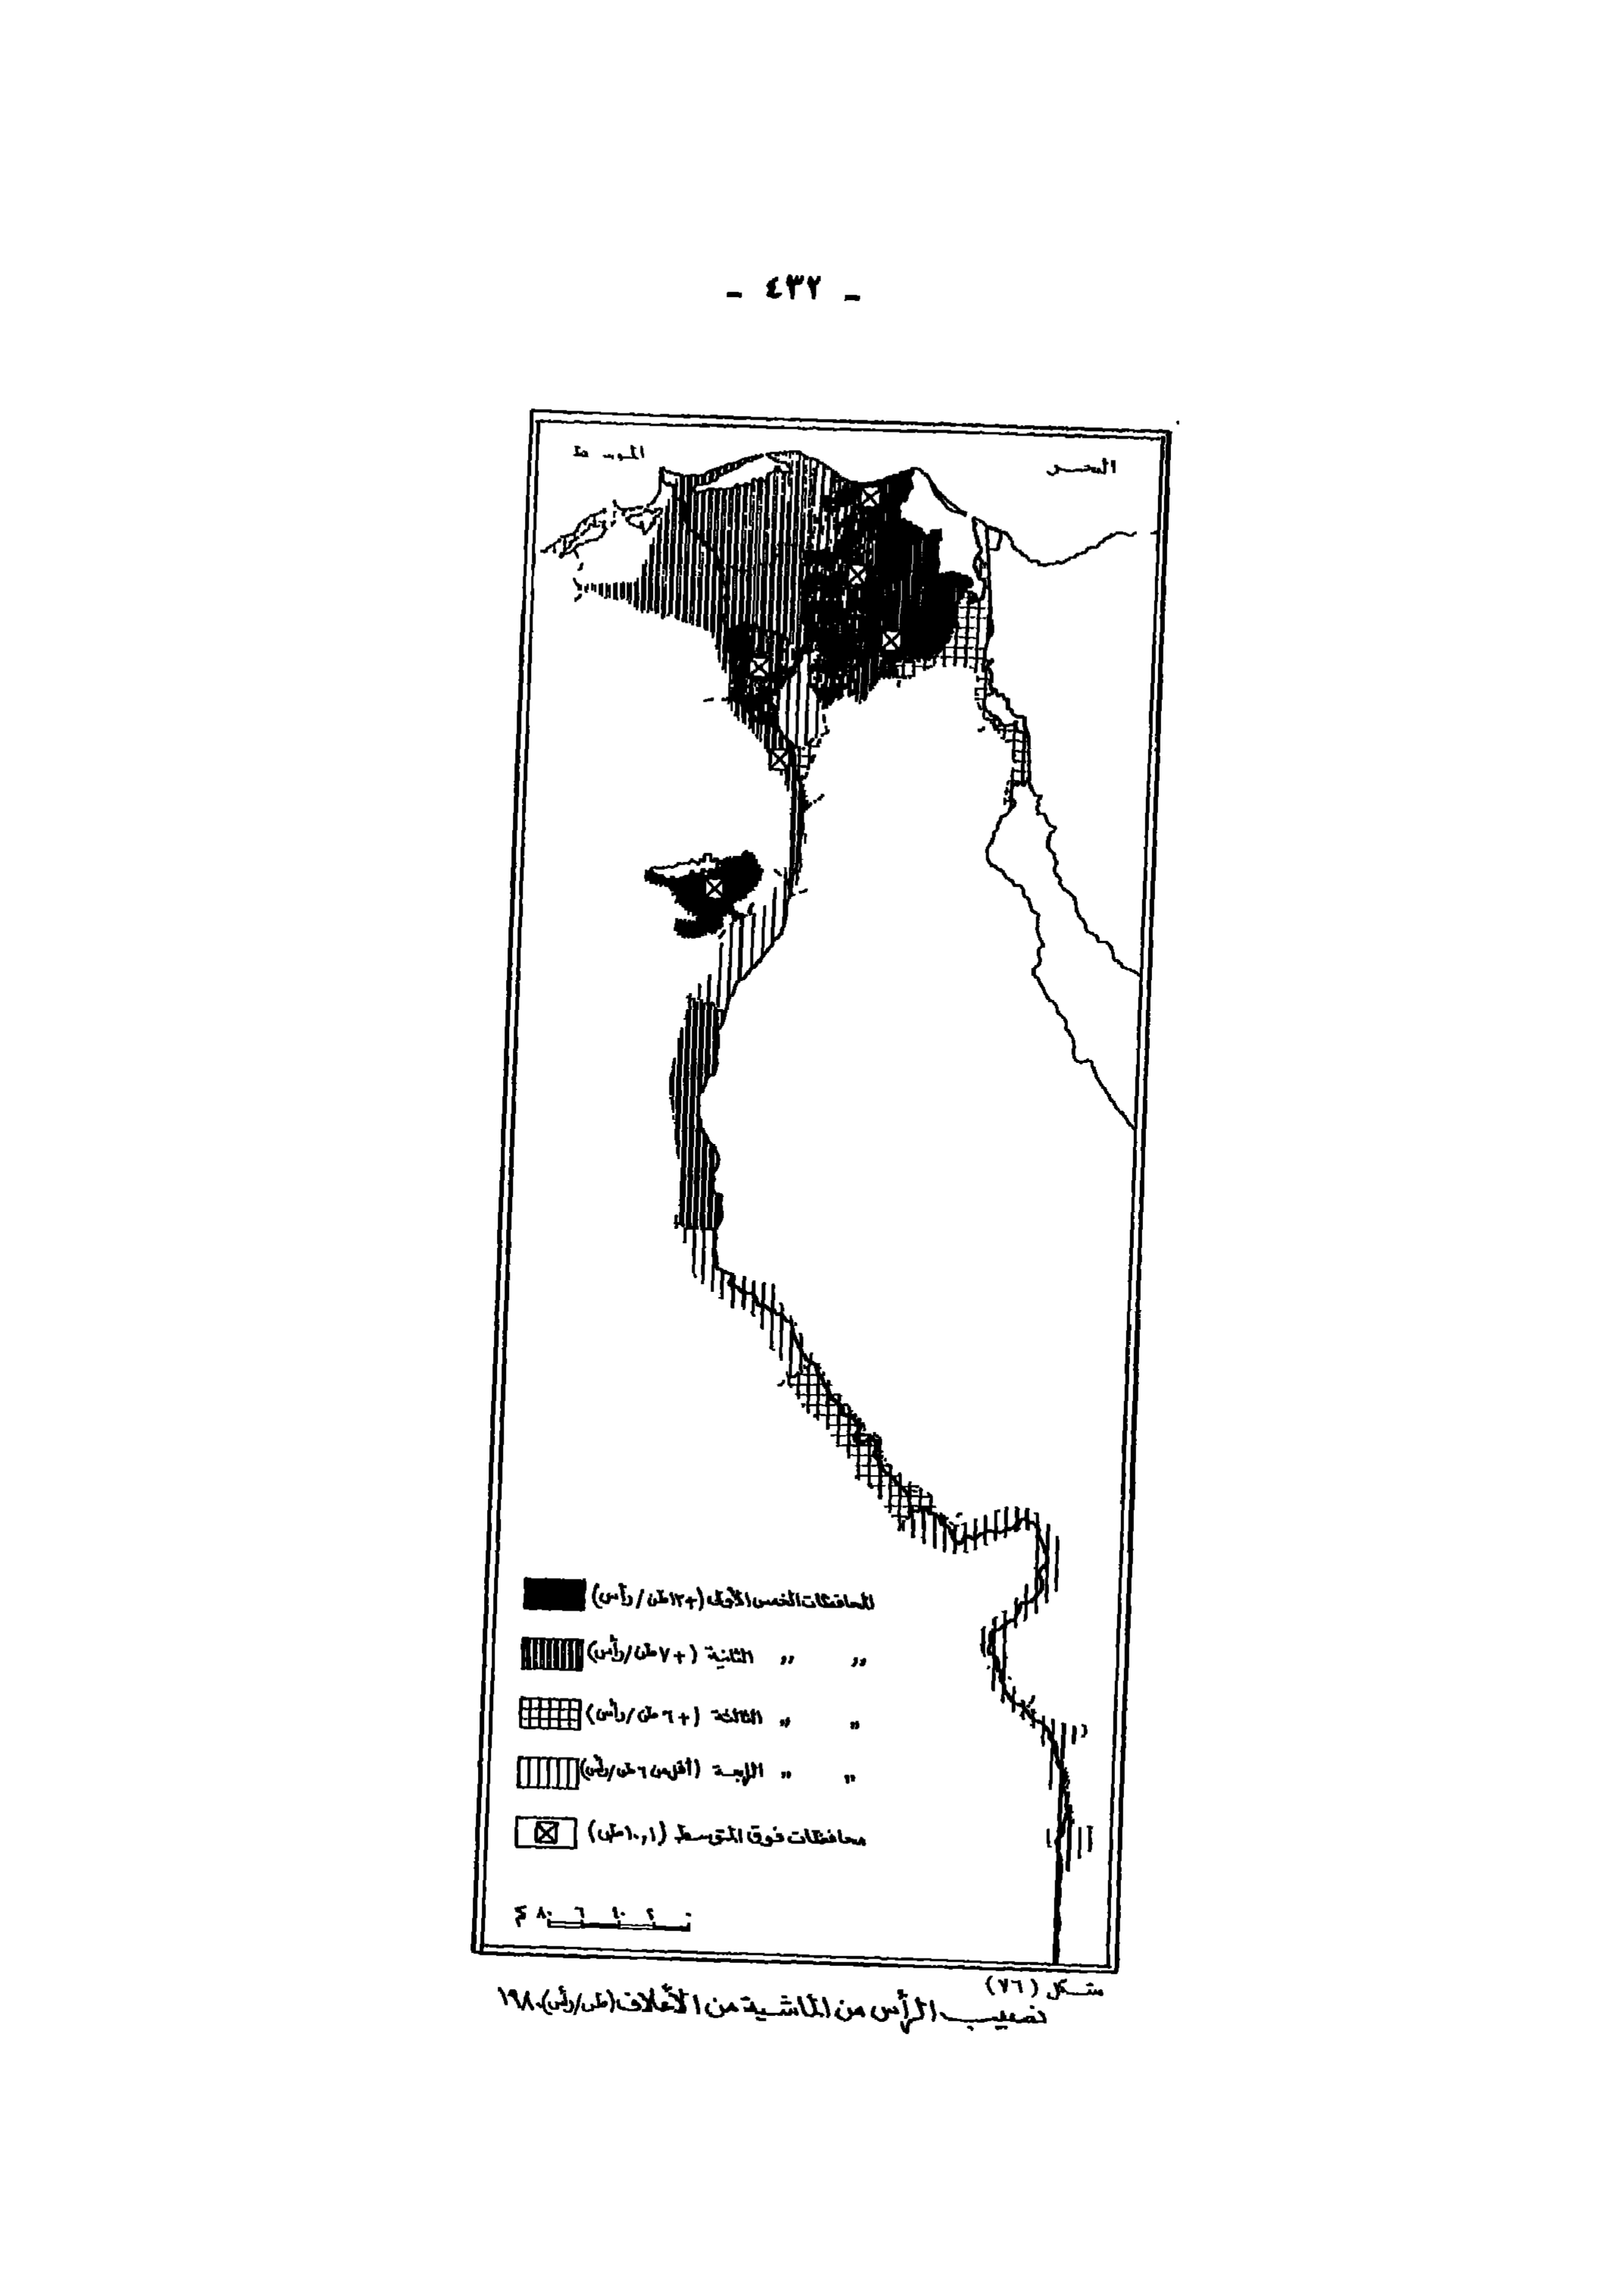 - ٤٣٢ -
البحر
المتوسط
المحافظات الخمس الأولى (+١٢ طن/رأس)
,, ,, الثانية (+٧ طن/رأس)
,, ,, الثالثة (+٦ طن/رأس)
,, ,, الرابعة (أقل من ٦ طن/رأس)
محافظات فوق المتوسط (١٠,١ طن)
شكل (٧٦)
نصيب الرأس من الماشية من الأعلاف (طن/رأس) ١٩٨٠